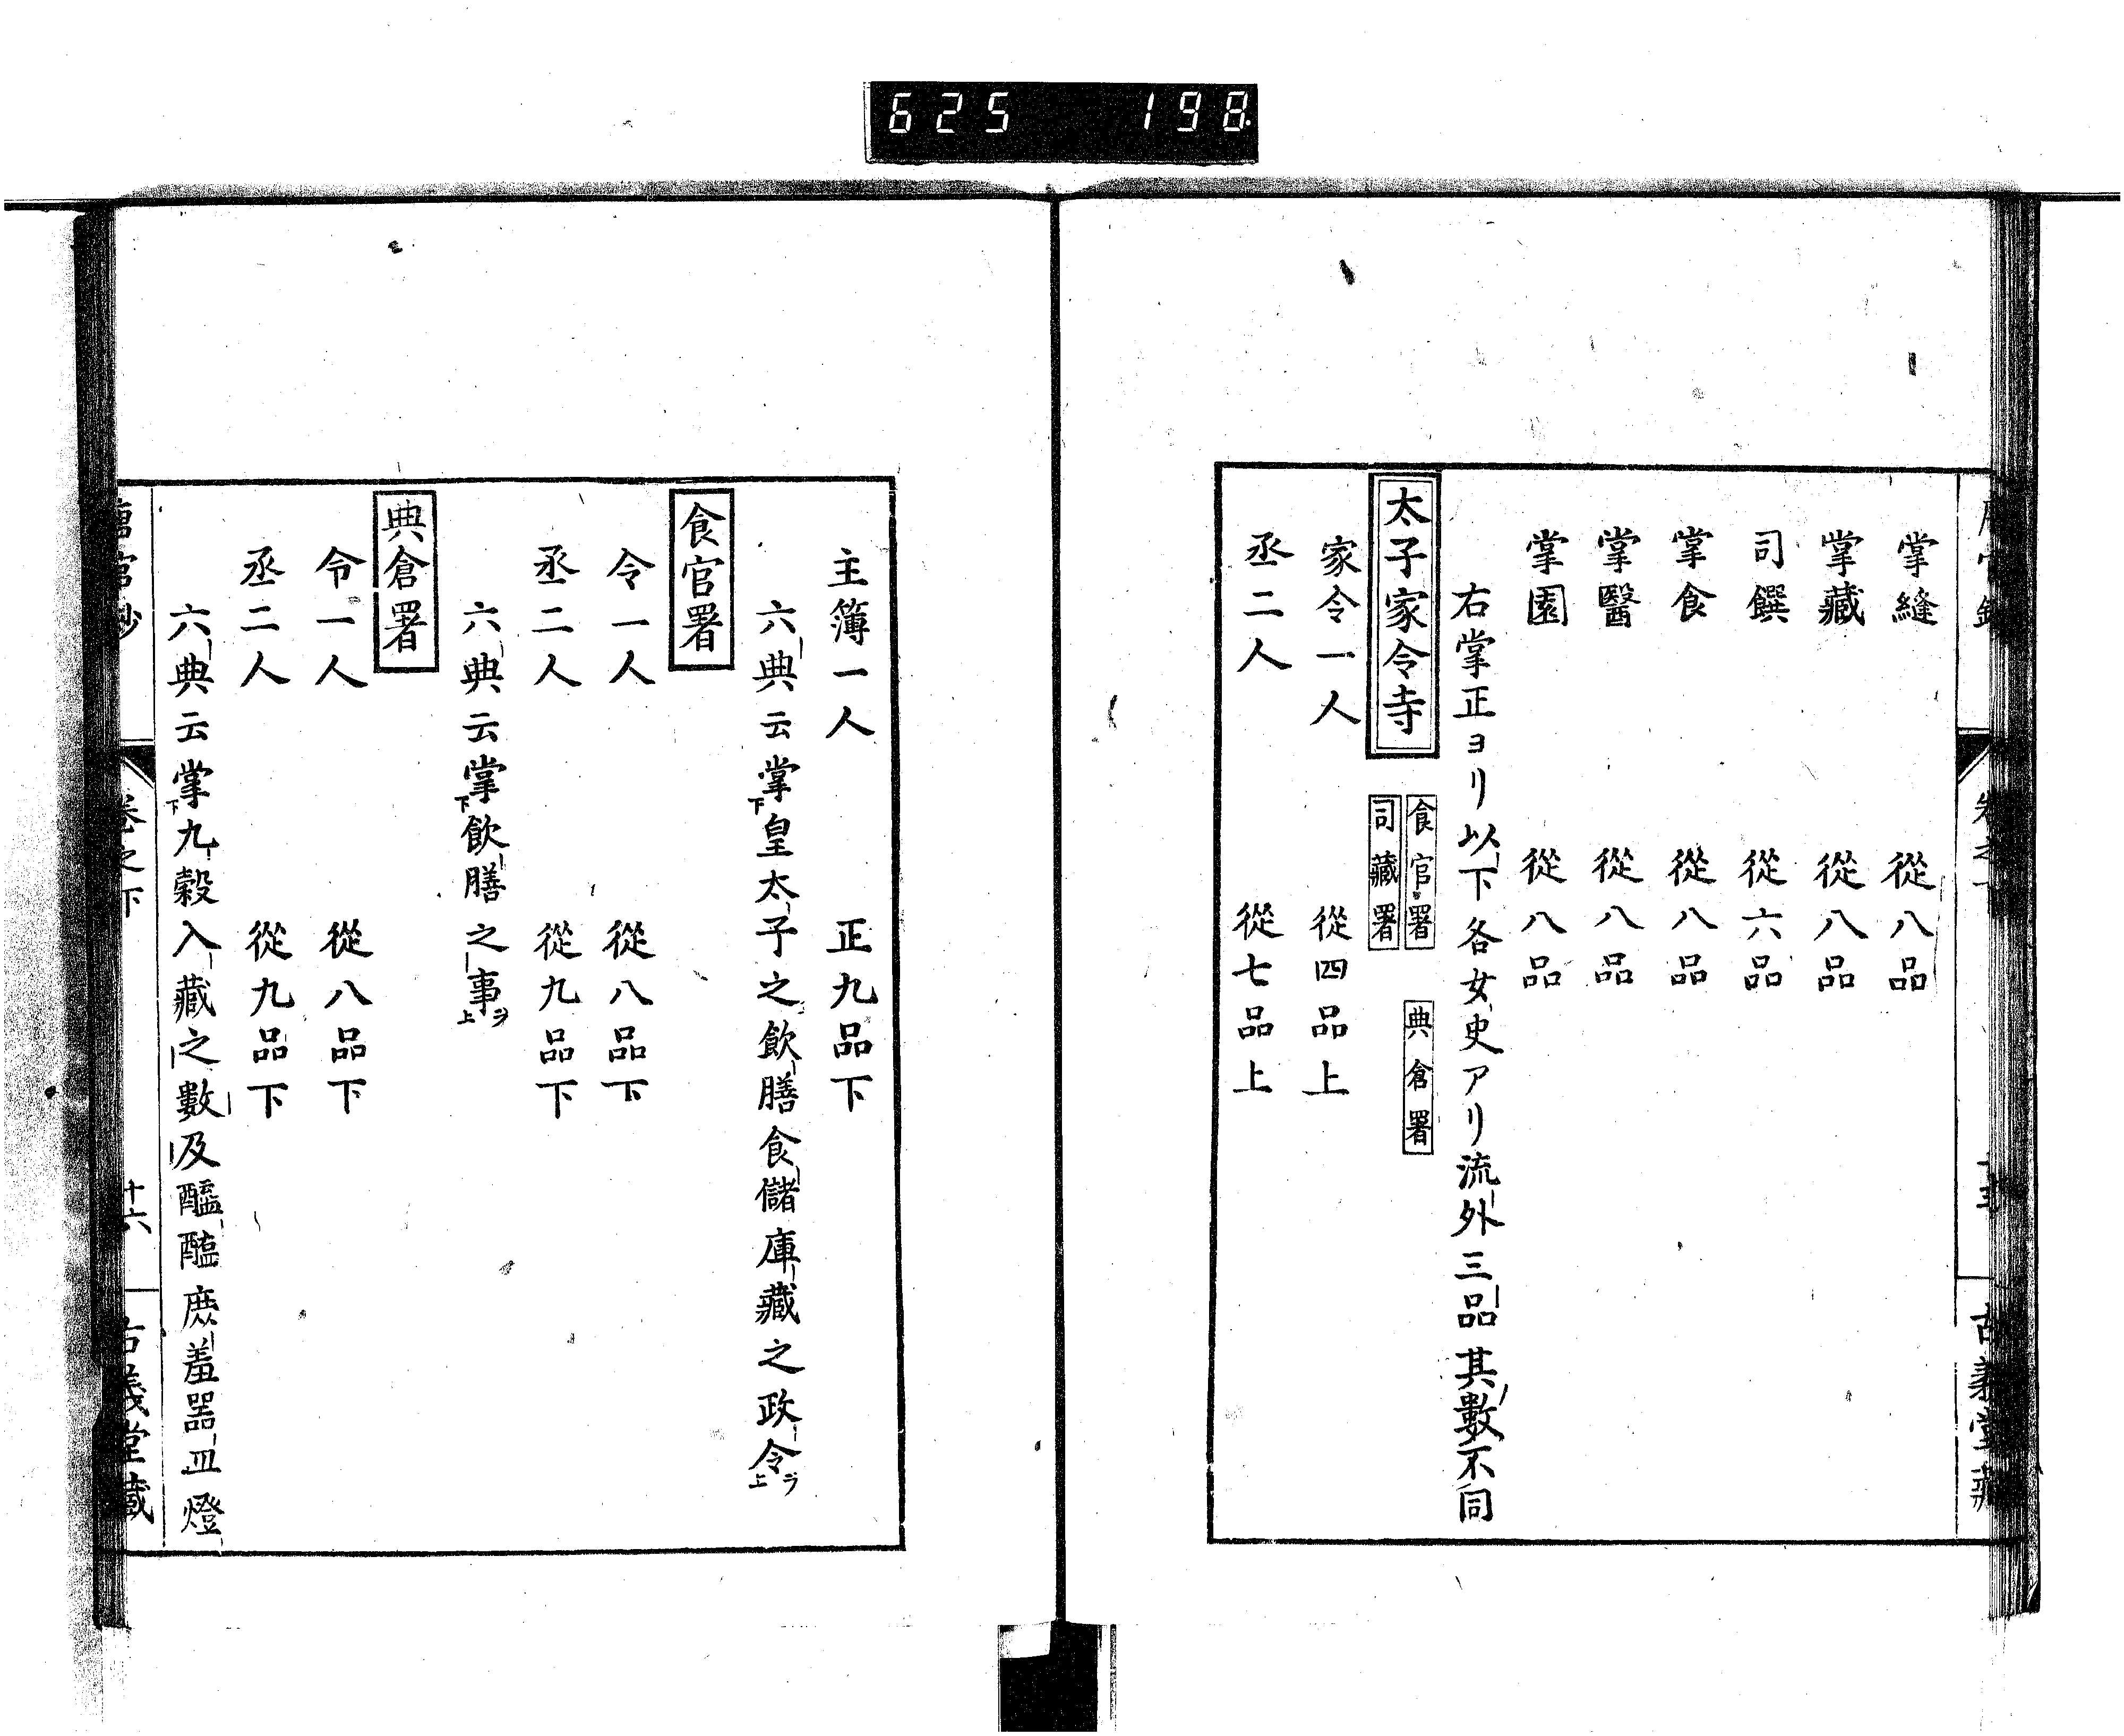 625 198
掌縫 從八品
掌藏 從八品
司饌 從六品
掌食 從八品
掌醫 從八品
掌園 從八品
右掌正ヨリ以下各女史アリ流外三品其數不同
太子家令寺 食官署 典倉署
司藏署
家令一人 從四品上
丞二人 從七品上
古義堂藏
主簿一人 正九品下
六典云掌下皇太子之飲膳食儲庫藏之政令ヲ上
食官署
令一人 從八品下
丞二人 從九品下
六典云掌下飲膳之事ヲ上
典倉署
令一人 從八品下
丞二人 從九品下
六典云掌下九穀入藏之數及醞醢庶羞器皿燈
唐官鈔 卷之下 十六 古義堂藏